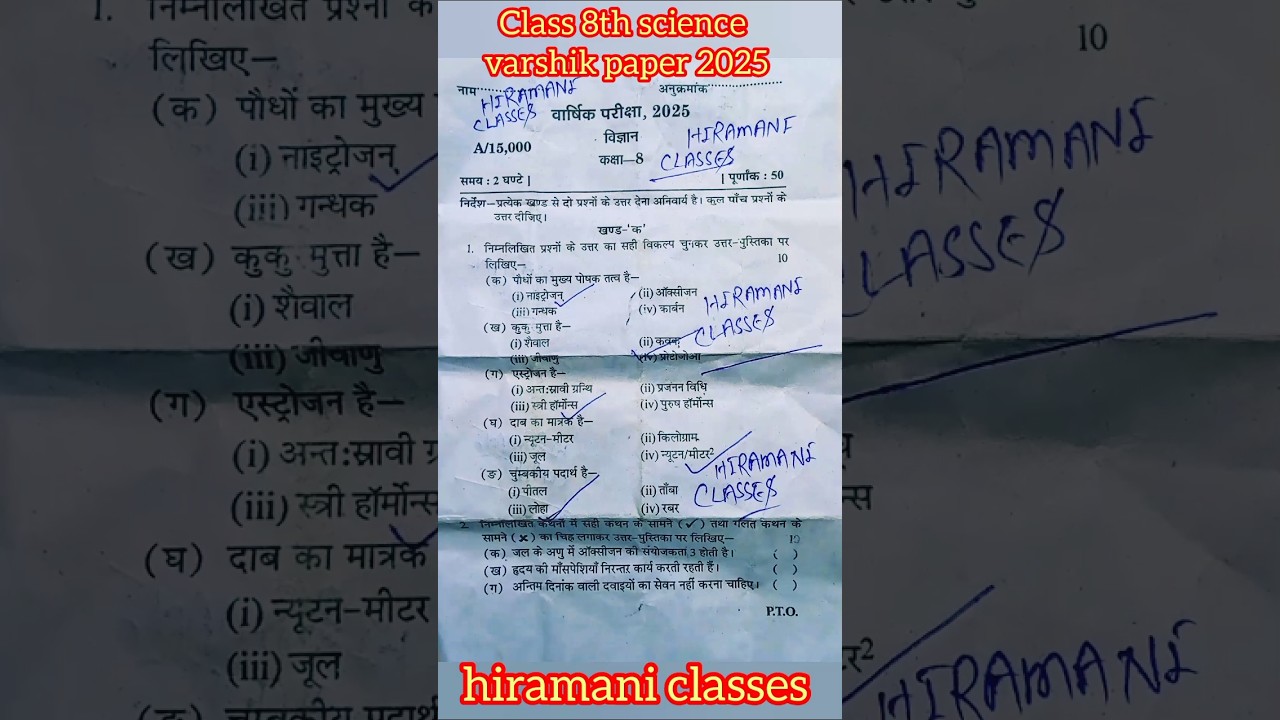 Class 8th science
varshik paper 2025
नाम........ अनुक्रमांक....................
HIRAMANI
CLASSES
वार्षिक परीक्षा, 2025
विज्ञान
A/15,000
कक्षा—8
HIRAMANI
CLASSES
समय : 2 घण्टे | | पूर्णांक : 50
निर्देश—प्रत्येक खण्ड से दो प्रश्नों के उत्तर देना अनिवार्य है। कुल पाँच प्रश्नों के
उत्तर दीजिए।
खण्ड-'क'
1. निम्नलिखित प्रश्नों के उत्तर का सही विकल्प चुनकर उत्तर-पुस्तिका पर
लिखिए— 10
(क) पौधों का मुख्य पोषक तत्व है—
(i) नाइट्रोजन् (ii) ऑक्सीजन
(iii) गन्धक (iv) कार्बन
HIRAMANI
CLASSES
(ख) कुकुरमुत्ता है—
(i) शैवाल (ii) कवक
(iii) जीवाणु (iv) प्रोटोजोआ
(ग) एस्ट्रोजन है—
(i) अन्त:स्रावी ग्रन्थि (ii) प्रजनन विधि
(iii) स्त्री हॉर्मोन्स (iv) पुरुष हॉर्मोन्स
(घ) दाब का मात्रक है—
(i) न्यूटन-मीटर (ii) किलोग्राम
(iii) जूल (iv) न्यूटन/मीटर²
HIRAMANI
CLASSES
(ङ) चुम्बकीय पदार्थ है—
(i) पीतल (ii) ताँबा
(iii) लोहा (iv) रबर
2. निम्नलिखित कथनों में सही कथन के सामने (✓) तथा गलत कथन के
सामने (×) का चिह्न लगाकर उत्तर-पुस्तिका पर लिखिए— 10
(क) जल के अणु में ऑक्सीजन की संयोजकता 3 होती है। ( )
(ख) हृदय की माँसपेशियाँ निरन्तर कार्य करती रहती हैं। ( )
(ग) अन्तिम दिनांक वाली दवाइयों का सेवन नहीं करना चाहिए। ( )
P.T.O.
hiramani classes